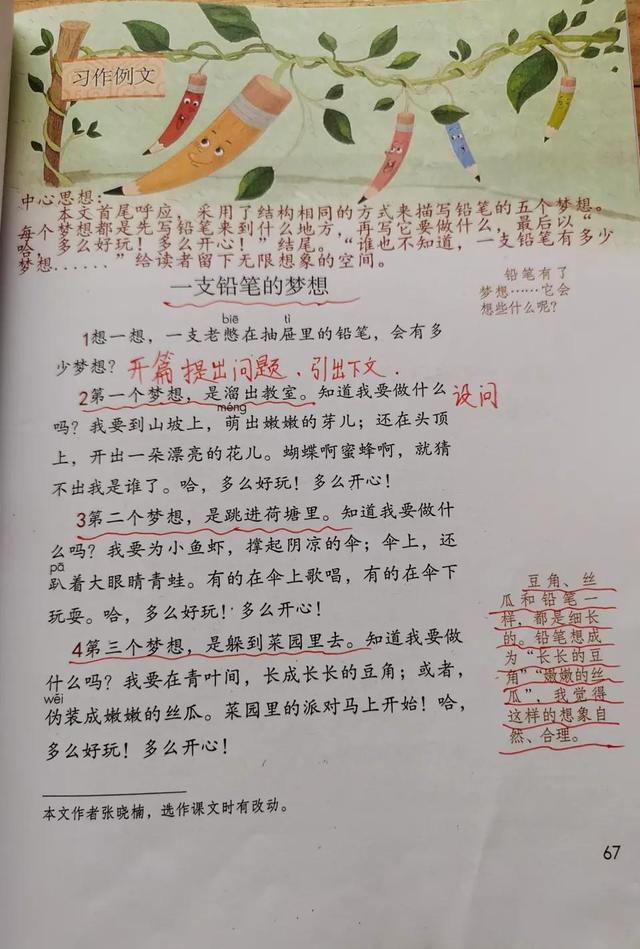 习作例文
中心思想：
本文首尾呼应，采用了结构相同的方式来描写铅笔的五个梦想。
每个梦想都是先写铅笔来到什么地方，再写它要做什么，最后以“
哈，多么好玩！多么开心！”结尾。“谁也不知道，一支铅笔有多少
梦想......”给读者留下无限想象的空间。
铅笔有了
梦想……它会
想些什么呢？
一支铅笔的梦想
biē tì
1想一想，一支老憋在抽屉里的铅笔，会有多
少梦想？开篇提出问题、引出下文.
2第一个梦想，是溜出教室。知道我要做什么 设问
méng
吗？我要到山坡上，萌出嫩嫩的芽儿；还在头顶
上，开出一朵漂亮的花儿。蝴蝶啊蜜蜂啊，就猜
不出我是谁了。哈，多么好玩！多么开心！
3第二个梦想，是跳进荷塘里。知道我要做什
么吗？我要为小鱼虾，撑起阴凉的伞；伞上，还
pā
趴着大眼睛青蛙。有的在伞上歌唱，有的在伞下
玩耍。哈，多么好玩！多么开心！
4第三个梦想，是躲到菜园里去。知道我要做
什么吗？我要在青叶间，长成长长的豆角；或者，
wěi
伪装成嫩嫩的丝瓜。菜园里的派对马上开始！哈，
多么好玩！多么开心！
豆角、丝
瓜和铅笔一
样，都是细长
的。铅笔想成
为“长长的豆
角”“嫩嫩的丝
瓜”，我觉得
这样的想象自
然、合理。
本文作者张晓楠，选作课文时有改动。
67